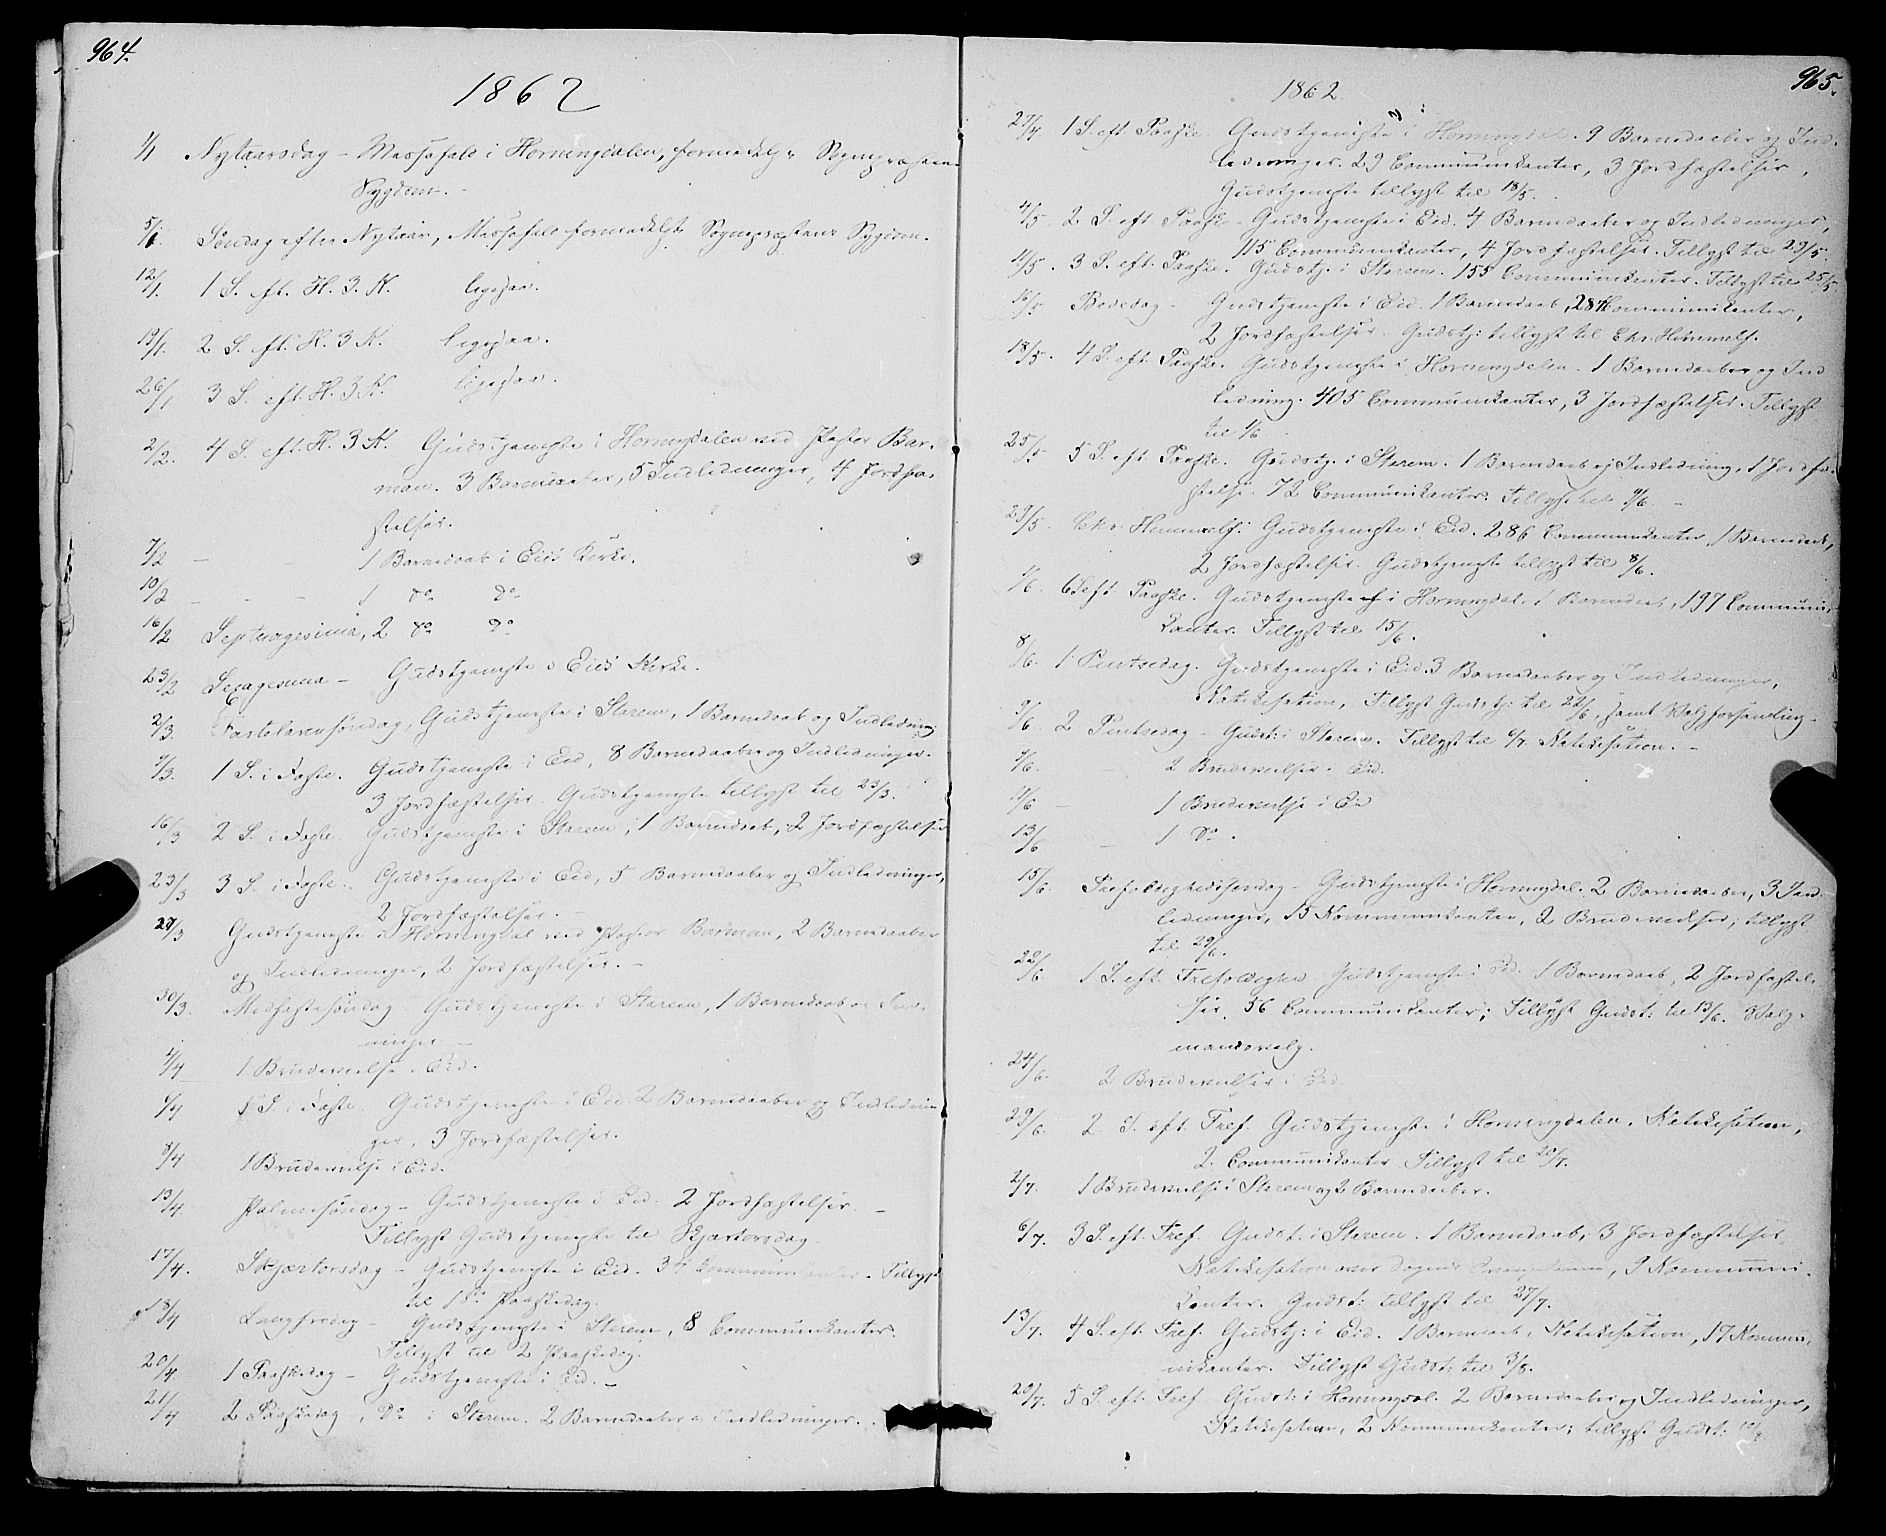 964.
1862
1/1 Nytaarsdag – Messefald i Horningdalen, formedelst Sognepræstens
Sygdom. –
5/1. Søndag efter Nytaar, Messefald formedelst Sognepræstens Sygdom.
12/1. 1 S. eft. H. 3 K. ligesaa.
19/1. 2 S. eft. H. 3 K. ligesaa.
26/1 3 S. eft. H. 3 K. ligesaa.
2/2. 4 S. eft. H. 3 K. Gudstjeneste i Horningdalen ved Pastor Bar-
man. 3 Barnedaaber, 5 Indledninger, 4 Jordfæ-
stelser.
7/2 – – 1 Barnedaab i Eids Kirke.
10/2 – – – 1 do do
16/2 Septuagesima, 2 do do
23/2 Sexagesima – Gudstjeneste i Eids Kirke.
2/3. Fastelavnssøndag, Gudstjeneste i Starem, 1 Barnedaab og Indledning
9/3. 1 S. i Faste. Gudstjeneste i Eid, 8 Barnedaaber og Indledninger.
3 Jordfæstelser. Gudstjeneste tillyst til 23/3.
16/3 2 S. i Faste Gudstjeneste i Starem, 1 Barnedaab, 2 Jordfæstelser
23/3 3 S. i Faste. Gudstjeneste i Eid, 5 Barnedaaber og Indledninger,
2 Jordfæstelser. –
27/3 Gudstjeneste i Horningdal ved Pastor Barman, 2 Barnedaaber
og Indledninger, 2 Jordfæstelser. –
30/3. Midfastesøndag – Gudstjeneste i Starem, 1 Barnedaab og Ind-
ninger –
4/4 1 Brudevielse i Eid.
6/4 5 S. i Faste. Gudstjeneste i Eid 2 Barnedaaber og Indlednin
ger, 3 Jordfæstelser.
8/4 1 Brudevielse i Eid.
13/4. Palmesøndag – Gudstjeneste i Eid. 2 Jordfæstelser. –
Tillyst Gudstjeneste til Skjærtorsdag.
17/4. Skjærtorsdag – Gudstjeneste i Eid. 34 Communikanter. Tillyst
til 1ste Paaskedag.
18/4 Langfredag – Gudstjeneste i Starem, 8 Communikanter.
Tillyst til 2 Paaskedag.
20/4 1 Paaskedag – Gudstjeneste i Eid. –
21/4 2 Paaskedag, do i Starem. 2 Barnedaaber og Indledninger.
965.
1862
27/4 1 S. eft. Paaske. Gudstjeneste i Horningdal. 9 Barnedaaber og Ind-
ledninger. 29 Communikanter, 3 Jordfæstelser,
Gudstjeneste tillyst til 18/5.
4/5. 2 S. eft. Paaske – Gudstjeneste i Eid. 4 Barnedaaber og Indledninger,
115 Communikanter, 4 Jordfæstelser. Tillyst til 29/5.
11/5. 3 S. eft. Paaske. Gudstj. i Starem. 155 Communikanter. Tillyst til 25/5.
16/5 Bededag – Gudstjeneste i Eid. 1 Barnedaab, 284 Communikanter,
2 Jordfæstelser. Gudstj. tillyst til Chr. Himmelf.
18/5. 4 S. eft. Paaske. Gudstjeneste i Horningdalen. 1 Barnedaaber og Ind
ledning. 405 Communikanter, 3 Jordfæstelser. Tillyst
til 1/6.
25/5 5 S. eft. Paaske. Gudstj. i Starem. 1 Barnedaab og Indledning, 1 Jordfæ-
stelse. 72 Communikanter. Tillyst til 9/6. –
29/5. Chr. Himmelf. Gudstjeneste i Eid. 286 Communikanter, 1 Barnedaab,
2 Jordfæstelser. Gudstjeneste tillyst til 8/6.
1/6. 6 S eft. Paaske. Gudstjeneste i Horningdal. 1 Barnedaab, 197 Communi-
kanter. Tillyst til 15/6.
8/6. 1 Pintsedag. Gudstjeneste i Eid. 3 Barnedaaber og Indledninger,
Katekisation, Tillyst Gudstj. til 22/6, samt Valgforsamling.
9/6. 2 Pintsedag – Gudst: i Starem. Tillyst til 6/7. Katekisation. –
9/6. – 2 Brudevielser i Eid.
11/6 – 1 Brudevielse i Eid
13/6 – 1 do.
15/6. Trefoldighedssøndag – Gudstjeneste i Horningdal. 2 Barnedaaber, 3 Ind
ledninger, 15 Kommunikanter, 2 Brudevielser, tillyst
til 29/6.
22/6 1 S. eft. Trefoldighed – Gudstjeneste i Eid. 1 Barnedaab, 2 Jordfæstel-
ser, 56 Communikanter; Tillyst Gudst: til 13/6. Valg-
mandsvalg.
24/6. 2 Brudevielser i Eid.
29/6. 2 S. eft. Tref. Gudstjeneste i Horningdalen, Katekisation,
2 Communikanter. Tillyst til 20/7.
2/7. 1 Brudevielse i Starem og 2 Barnedaaber.
6/7. 3 S. eft. Tref. Gudst: i Starem. 1 Barnedaab, 3 Jordfæstelser
Katekisation over Dagens Evangelium, 9 Kommuni-
kanter. Gudst: tillyst til 27/7.
13/7. 4 S. eft. Tref. Gudstj: i Eid. 1 Barnedaab, Katekisation, 17 Kommu-
nikanter. Tillyst Gudst: til 3/8.
20/7. 5 S. eft. Tref. Gudst: i Horningdal. 2 Barnedaaber og Indledninger,
Katekisation, 2 Kommunikanter; tillyst Gudst: 10/8